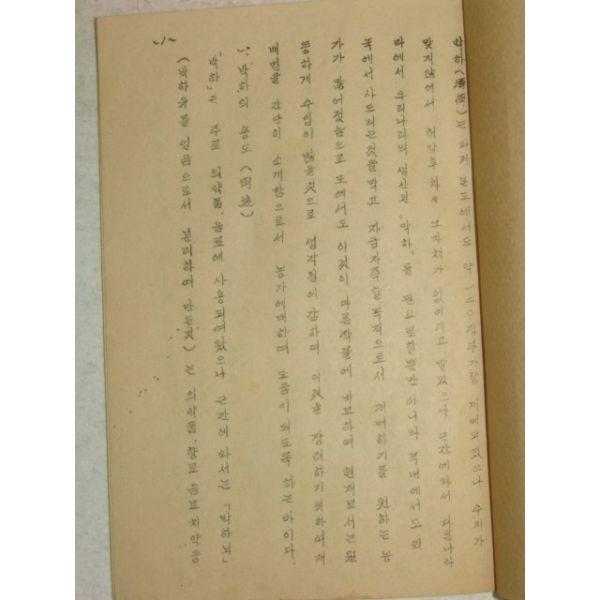 박하(薄荷)는 과거 본도에서도 약 一五○ 재배되였으나 수지가
맞지않어서 그 자취가 없어지고 말았으나 근간에와서 다른나라
에서 우리나라의 생산된 박하를 필요로할뿐만 아니라 국내에서도 외
국에서 사드리는것을막고 자급자족을목적으로서 재배하기를 원하는 농
가가 많어젔음으로 도에서도 이것이 다른작물에 비교하여 현재로서는
등하게 수입이 많을것으로 생각됨에감하여 이것을 장려하기로하여 재
배법을 간단히 소개함으로서 농가에대하여 도움이 되도록 하는바이다.
1. 박하의 용도(用途)
「박하」는 주로 의약품.음료에 사용되여왔으나 근간에 와서는 「박하뇌」
(박하유를 얻음으로서 분리하여 만든것)는 의약품.향료 음료 치약등
-1-